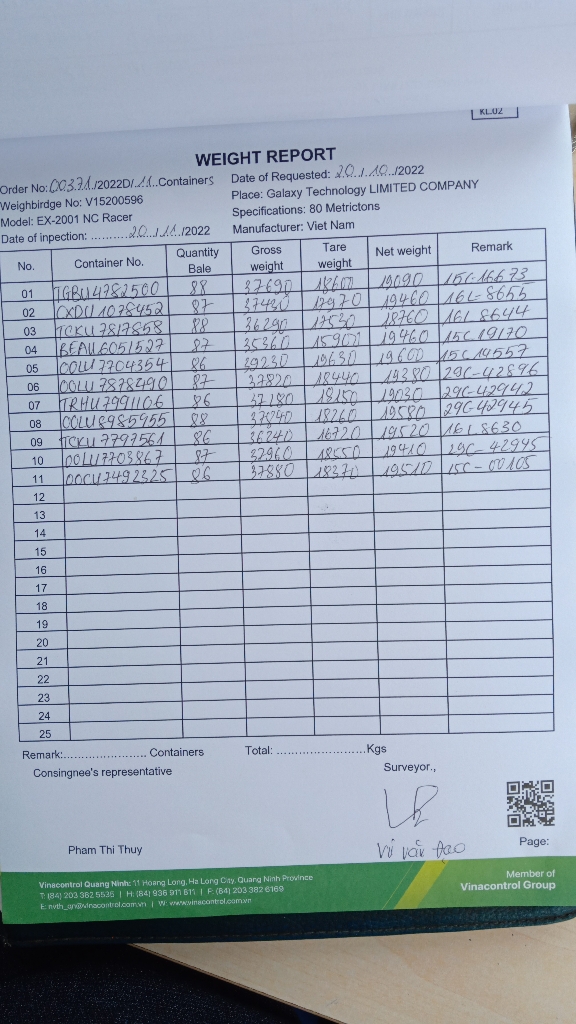 KL.02
WEIGHT REPORT
Order No: 00371/2022D/ 11 Containers
Date of Requested: 20 / 10 /2022
Weighbirdge No: V15200596
Place: Galaxy Technology LIMITED COMPANY
Model: EX-2001 NC Racer
Specifications: 80 Metrictons
Date of inpection: ........... 20 / 11 /2022
Manufacturer: Viet Nam
No. Container No. Quantity Bale Gross weight Tare weight Net weight Remark
01 TGBU4782560 88 37690 18600 19090 15C-16673
02 CXDU1078452 87 37430 17970 19460 16L-8655
03 TCKU7817858 88 36290 17530 18760 16L 8644
04 BEAU6051527 87 35360 15900 19460 15C 19170
05 OOLU7704354 86 39230 19630 19600 15C 14557
06 OOLU7878490 87 37820 18440 19380 29C-42896
07 TRHU7991106 86 37180 18150 19030 29C-42942
08 OOLU8985955 88 37840 18260 19580 29C-42945
09 TCKU7797561 86 36240 16720 19520 16L8630
10 OOLU7703867 87 37960 18550 19410 29C-42995
11 OOCU7492325 86 37880 18370 19510 15C-00105
12
13
14
15
16
17
18
19
20
21
22
23
24
25
Remark:....................... Containers Total: .........................Kgs
Consingnee's representative
Surveyor.,
Pham Thi Thuy
Vũ Văn Đạo
Page:
Vinacontrol Quang Ninh: 11 Hoang Long, Ha Long City, Quang Ninh Province
T: (84) 203 382 5535 | H: (84) 936 911 811 | F: (84) 203 382 6169
E: nvth_qn@vinacontrol.com.vn | W: www.vinacontrol.com.vn
Member of
Vinacontrol Group